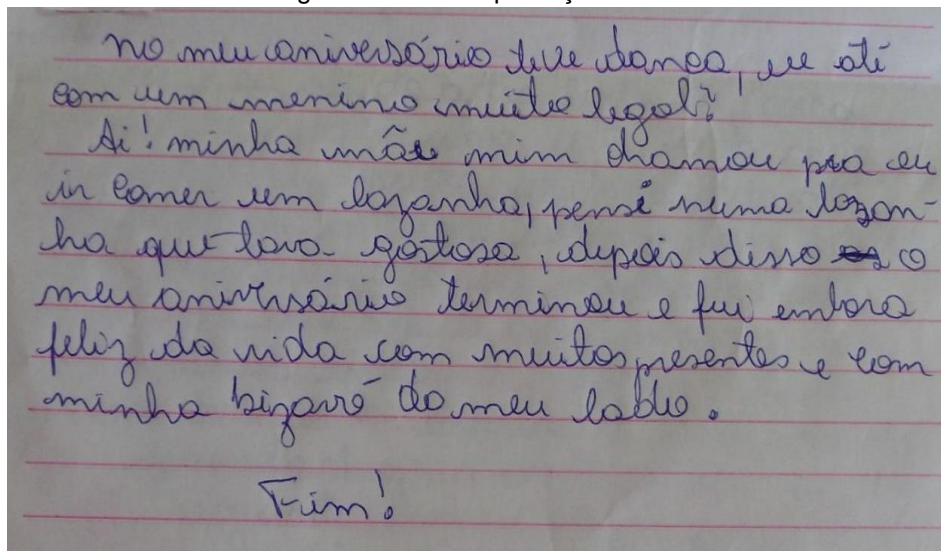 no meu aniversário teve dança, eu até
com um menino muito legal?
Ai! minha mãe mim chamou pra eu
in comer um lazanha, pensi numa lazan-
ha que tava gostosa, depois disso o
meu aniversário terminou e fui embora
feliz da vida com muitos presentes e com
minha bizavó do meu lado.
Fim!